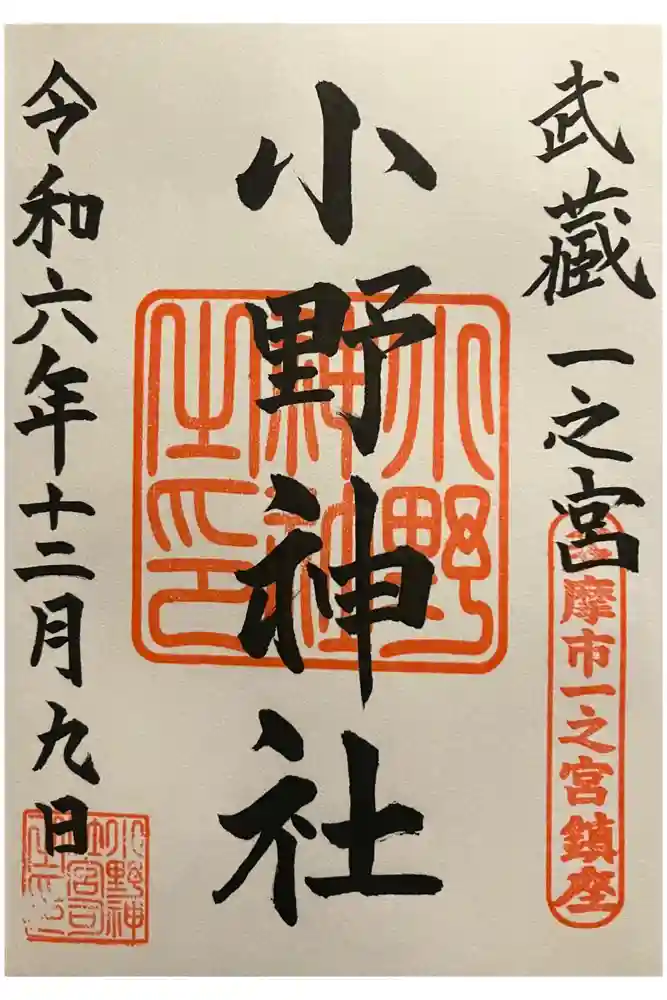 武藏一之宮
多摩市一之宮鎮座
小野神社
小野神社之印
令和六年十二月九日
小野神社宮司之印